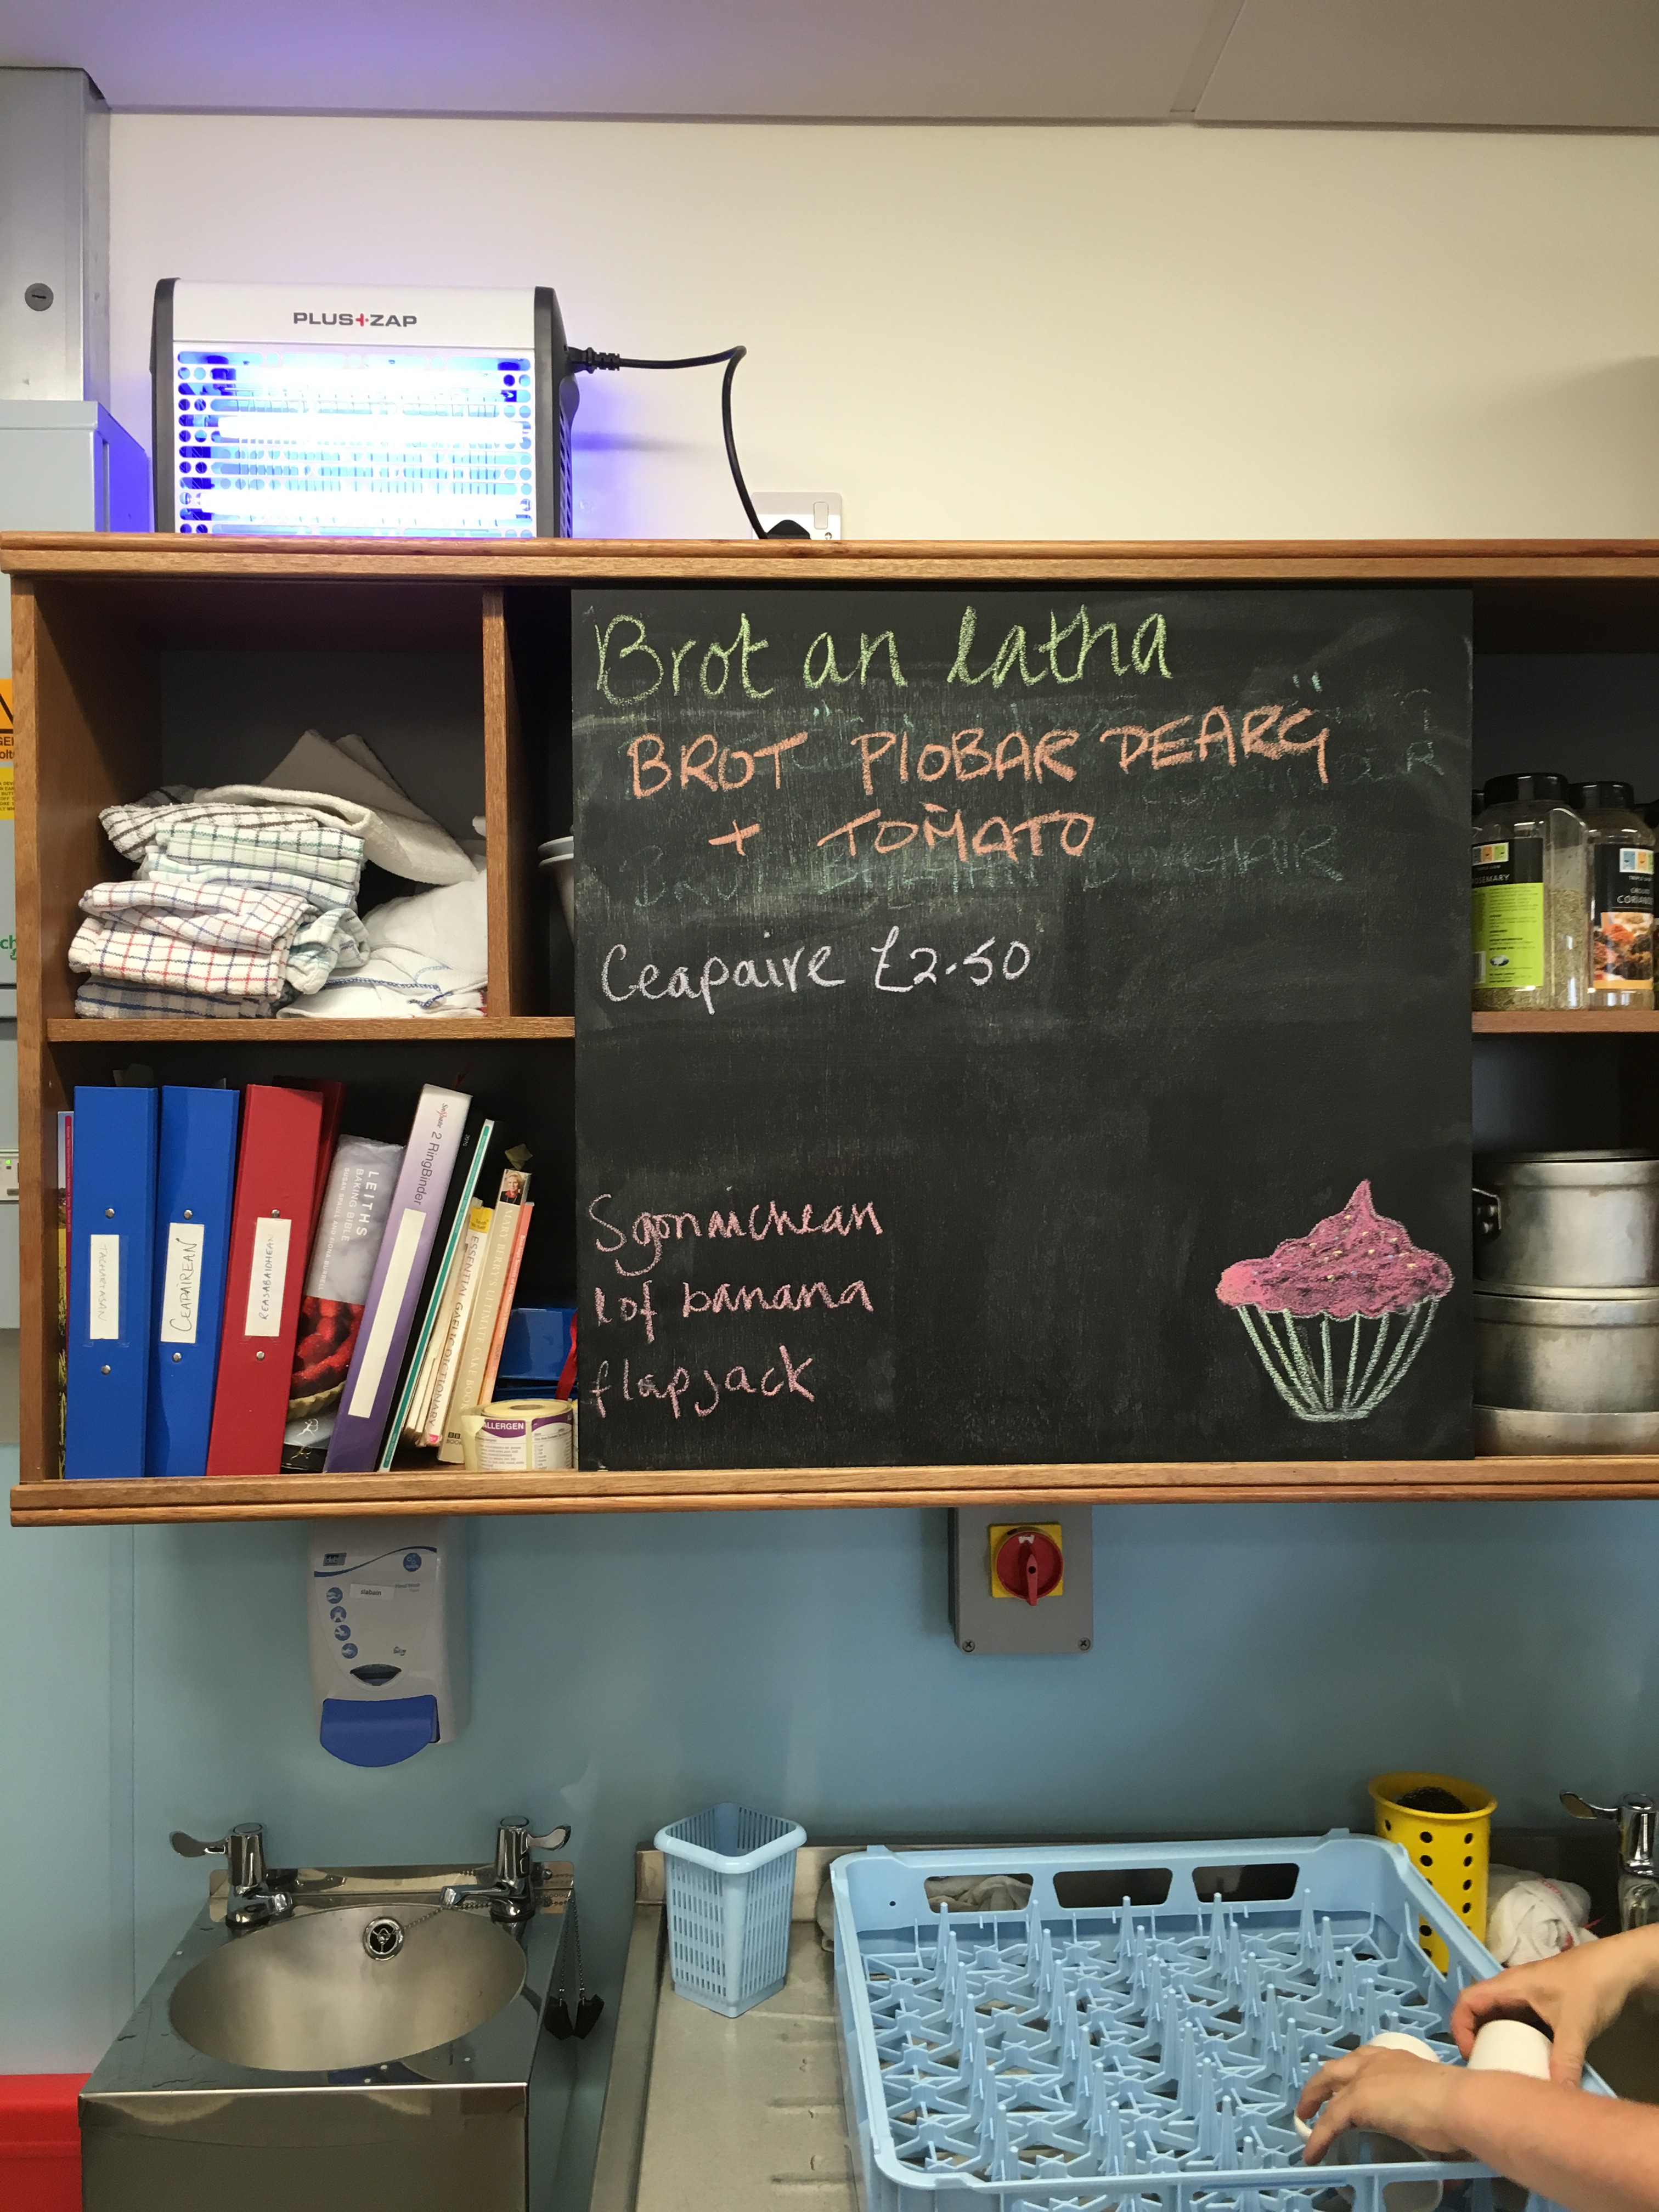 PLUS+ZAP
Brot an latha
BROT PIOBAR DEARG
+ TOMATO
Ceapaire £2.50
Sgonaichean
lof banana
flapjack
CEAPAIREAN
REASABAIDHEAN
LEITHS
BAKING BIBLE
2 RingBinder
ESSENTIAL GAELIC DICTIONARY
MARY BERRY'S ULTIMATE CAKE BOOK
ALLERGEN
ROSEMARY
GROUND
siabain